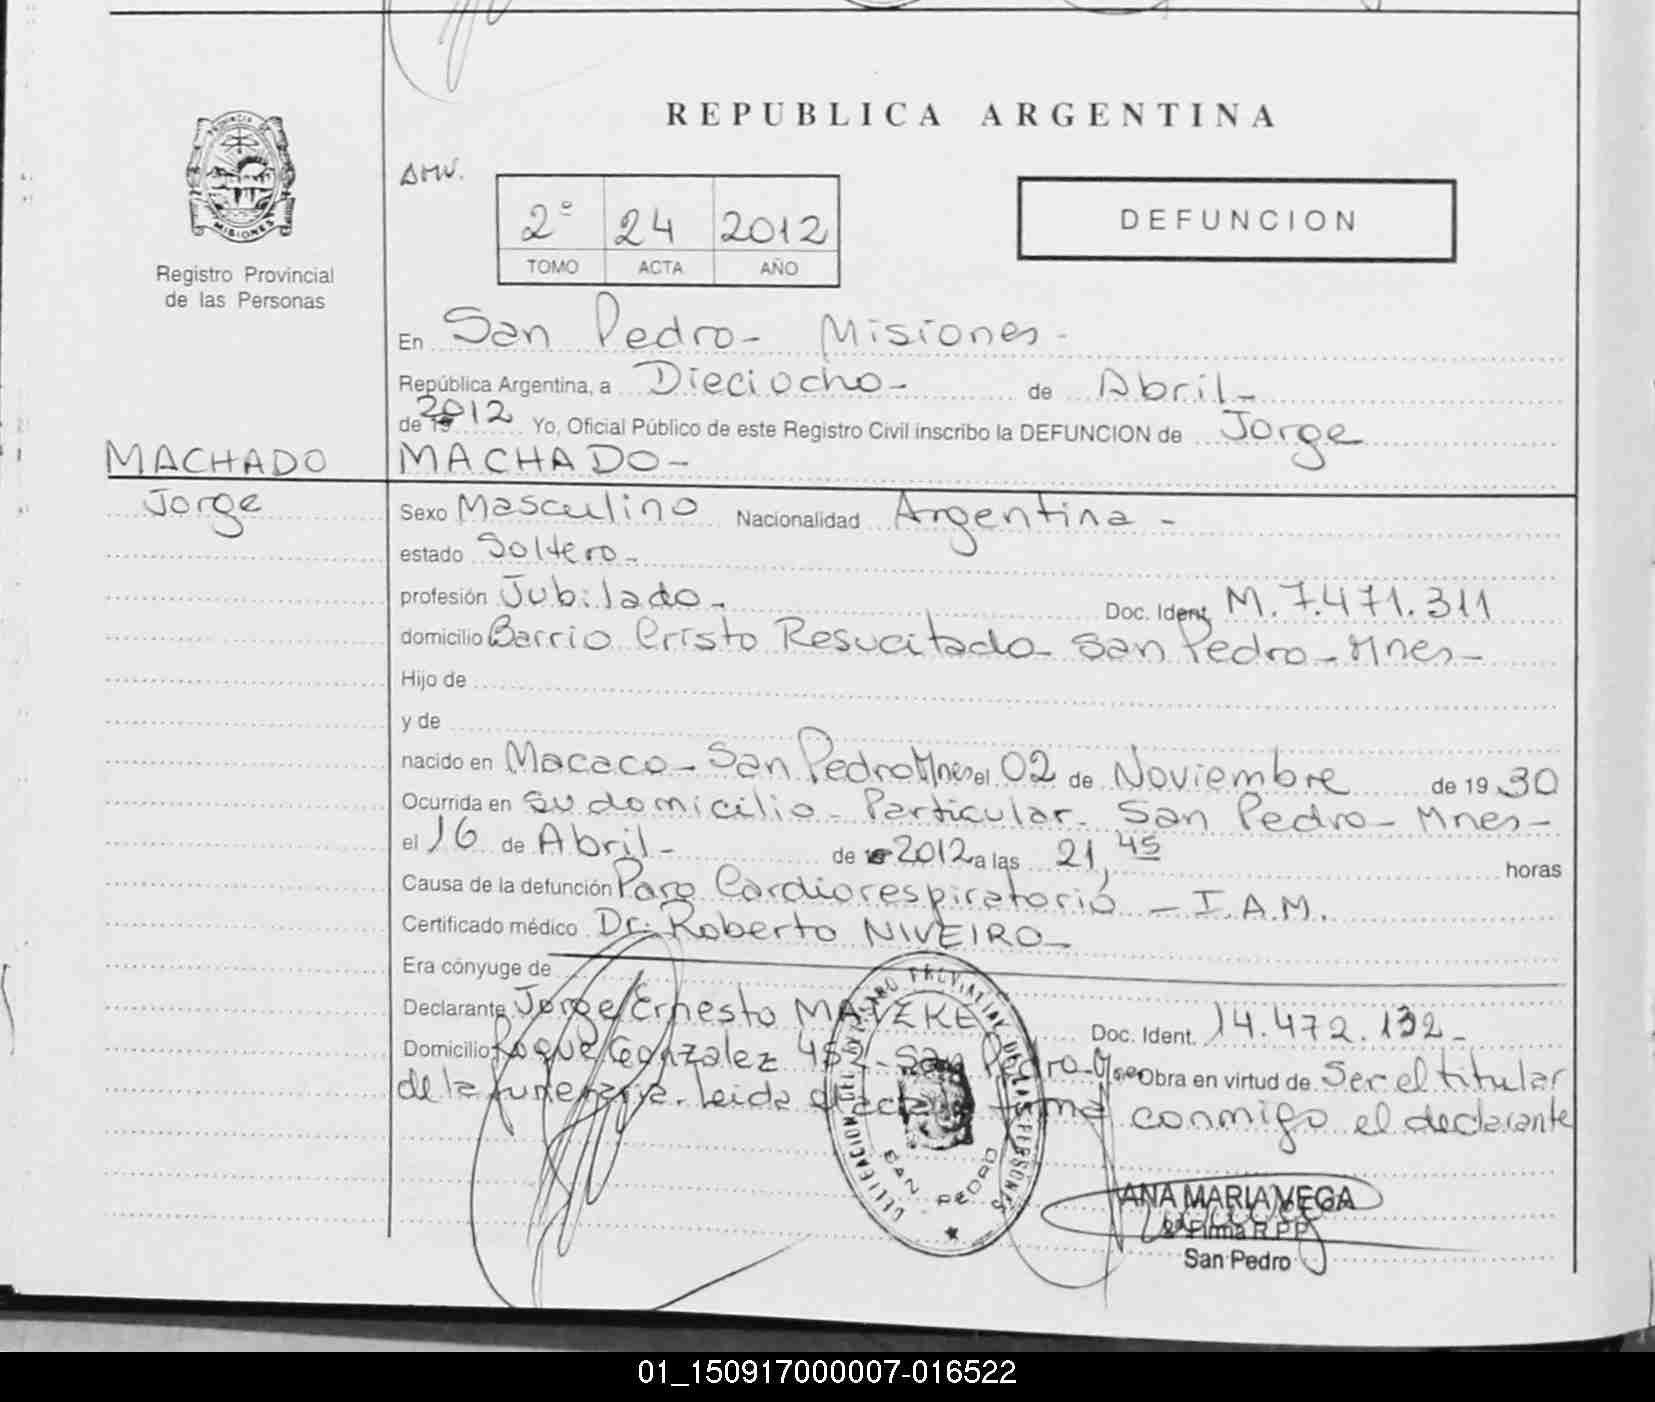 REPUBLICA ARGENTINA
PROVINCIA DE
MISIONES
Registro Provincial
de las Personas
AMV.
2º 24 2012
TOMO ACTA AÑO
DEFUNCION
En San Pedro- Misiones-
República Argentina, a Dieciocho- de Abril-
de 2012 Yo, Oficial Público de este Registro Civil inscribo la DEFUNCION de Jorge
MACHADO MACHADO-
Jorge
Sexo Masculino Nacionalidad Argentina-
estado Soltero-
profesión Jubilado- Doc. Ident. M. 7.471.311
domicilio Barrio Cristo Resucitado- San Pedro- Mnes-
Hijo de
y de
nacido en Macaco- San Pedro Mnes el 02 de Noviembre de 19 30
Ocurrida en Su domicilio- Particular- San Pedro- Mnes-
el 16 de Abril- de 2012 a las 21,45 horas
Causa de la defunción Paro Cardiorespiratorio - I.A.M.
Certificado médico Dr. Roberto NIVEIRO-
Era cónyuge de
Declarante Jorge Ernesto MATZKE Doc. Ident. 14.472.132-
Domicilio Roque Gonzalez 452- San Pedro- Obra en virtud de Ser el titular
de la funeraria. Leida el acta firma conmigo el declarante
SAN PEDRO
ANA MARIA VEGA
Firma R.P.P.
San Pedro
01_150917000007-016522